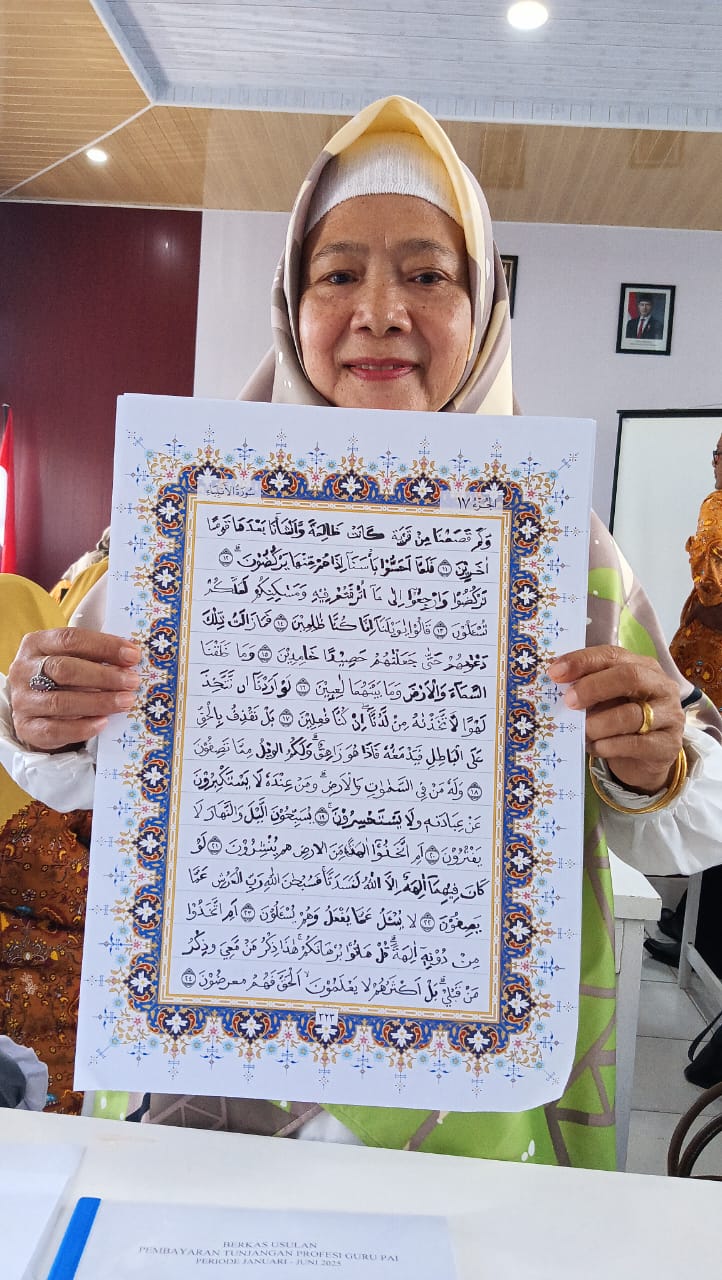 سُورَةُ الأَنْبِيَاءِ
الجُزْءُ ١٧
وَكَمْ قَصَمْنَا مِنْ قَرْيَةٍ كَانَتْ ظَالِمَةً وَأَنْشَأْنَا بَعْدَهَا قَوْمًا
آخَرِيْنَ ١١ فَلَمَّا أَحَسُّوْا بَأْسَنَا إِذَا هُمْ مِنْهَا يَرْكُضُوْنَ ۗ ١٢
تَرْكُضُوْا وَارْجِعُوْا إِلَى مَا أُتْرِفْتُمْ فِيْهِ وَمَسٰكِنِكُمْ لَعَلَّكُمْ
تُسْئَلُوْنَ ١٣ قَالُوْا يٰوَيْلَنَا إِنَّا كُنَّا ظٰلِمِيْنَ ١٤ فَمَا زَالَتْ تِلْكَ
دَعْوٰىهُمْ حَتّٰى جَعَلْنٰهُمْ حَصِيْدًا خَامِدِيْنَ ١٥ وَمَا خَلَقْنَا
السَّمَاءَ وَالْأَرْضَ وَمَا بَيْنَهُمَا لَعِبِيْنَ ١٦ لَوْ أَرَدْنَا أَنْ نَتَّخِذَ
لَهْوًا لَاتَّخَذْنٰهُ مِنْ لَدُنَّا إِنْ كُنَّا فٰعِلِيْنَ ١٧ بَلْ نَقْذِفُ بِالْحَقِّ
عَلَى الْبَاطِلِ فَيَدْمَغُهُ فَإِذَا هُوَ زَاهِقٌ ۗ وَلَكُمُ الْوَيْلُ مِمَّا تَصِفُوْنَ
١٨ وَلَهُ مَنْ فِى السَّمٰوٰتِ وَالْأَرْضِ ۗ وَمَنْ عِنْدَهُ لَا يَسْتَكْبِرُوْنَ
عَنْ عِبَادَتِهِ وَلَا يَسْتَحْسِرُوْنَ ۚ ١٩ يُسَبِّحُوْنَ الَّيْلَ وَالنَّهَارَ لَا
يَفْتُرُوْنَ ٢٠ أَمِ اتَّخَذُوْا اٰلِهَةً مِنَ الْأَرْضِ هُمْ يُنْشِرُوْنَ ٢١ لَوْ
كَانَ فِيْهِمَا اٰلِهَةٌ إِلَّا اللّٰهُ لَفَسَدَتَا فَسُبْحٰنَ اللّٰهِ رَبِّ الْعَرْشِ عَمَّا
يَصِفُوْنَ ٢٢ لَا يُسْئَلُ عَمَّا يَفْعَلُ وَهُمْ يُسْئَلُوْنَ ٢٣ أَمِ اتَّخَذُوْا
مِنْ دُوْنِهِ اٰلِهَةً ۗ قُلْ هَاتُوْا بُرْهَانَكُمْ ۚ هٰذَا ذِكْرُ مَنْ مَّعِيَ وَذِكْرُ
مَنْ قَبْلِيْ ۗ بَلْ أَكْثَرُهُمْ لَا يَعْلَمُوْنَ ۙ الْحَقَّ فَهُمْ مُعْرِضُوْنَ ٢٤
٣٢٣
BERKAS USULAN
PEMBAYARAN TUNJANGAN PROFESI GURU PAI
PERIODE JANUARI - JUNI 2025